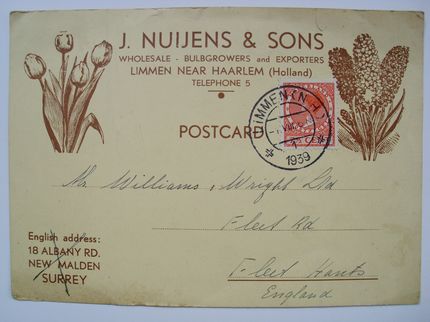 J. NUIJENS & SONS
WHOLESALE - BULBGROWERS and EXPORTERS
LIMMEN NEAR HAARLEM (Holland)
TELEPHONE 5
POSTCARD
LIMMEN (N-H)
1939
Mr Williams, Wright Ltd
Fleet Rd
Fleet Hants
England
English address:
18 ALBANY RD.
NEW MALDEN
SURREY